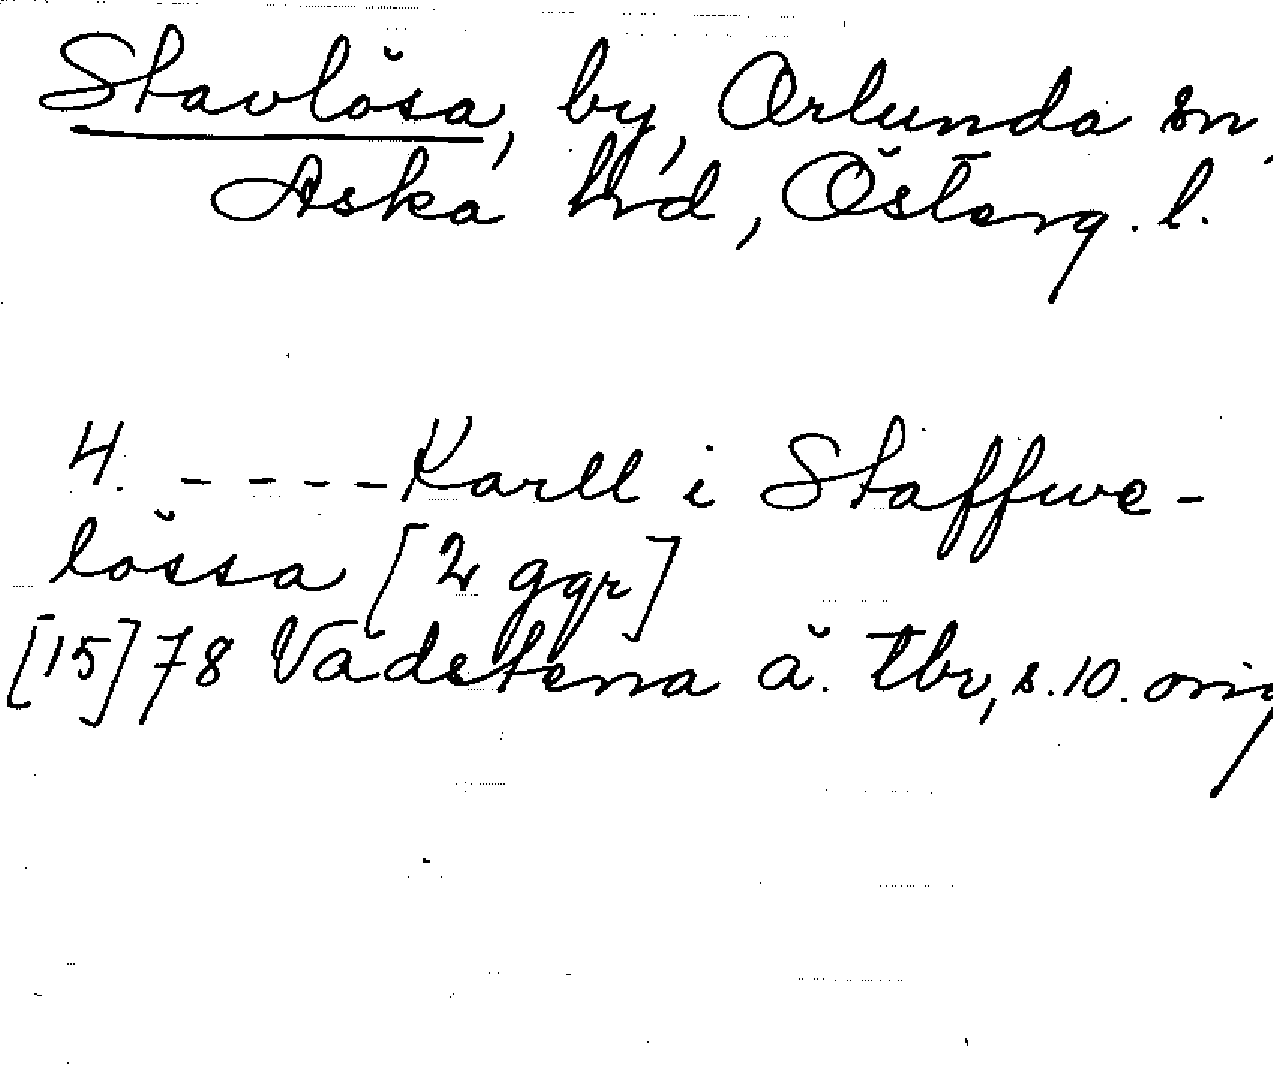 Stavlösa, by, Orlunda sn,
Aska hd, Österg. l.
4. - - - - Karll i Staffwe-
lössa [2 ggr]
[15]78 Vadstena ä. tbr, s. 10. orig